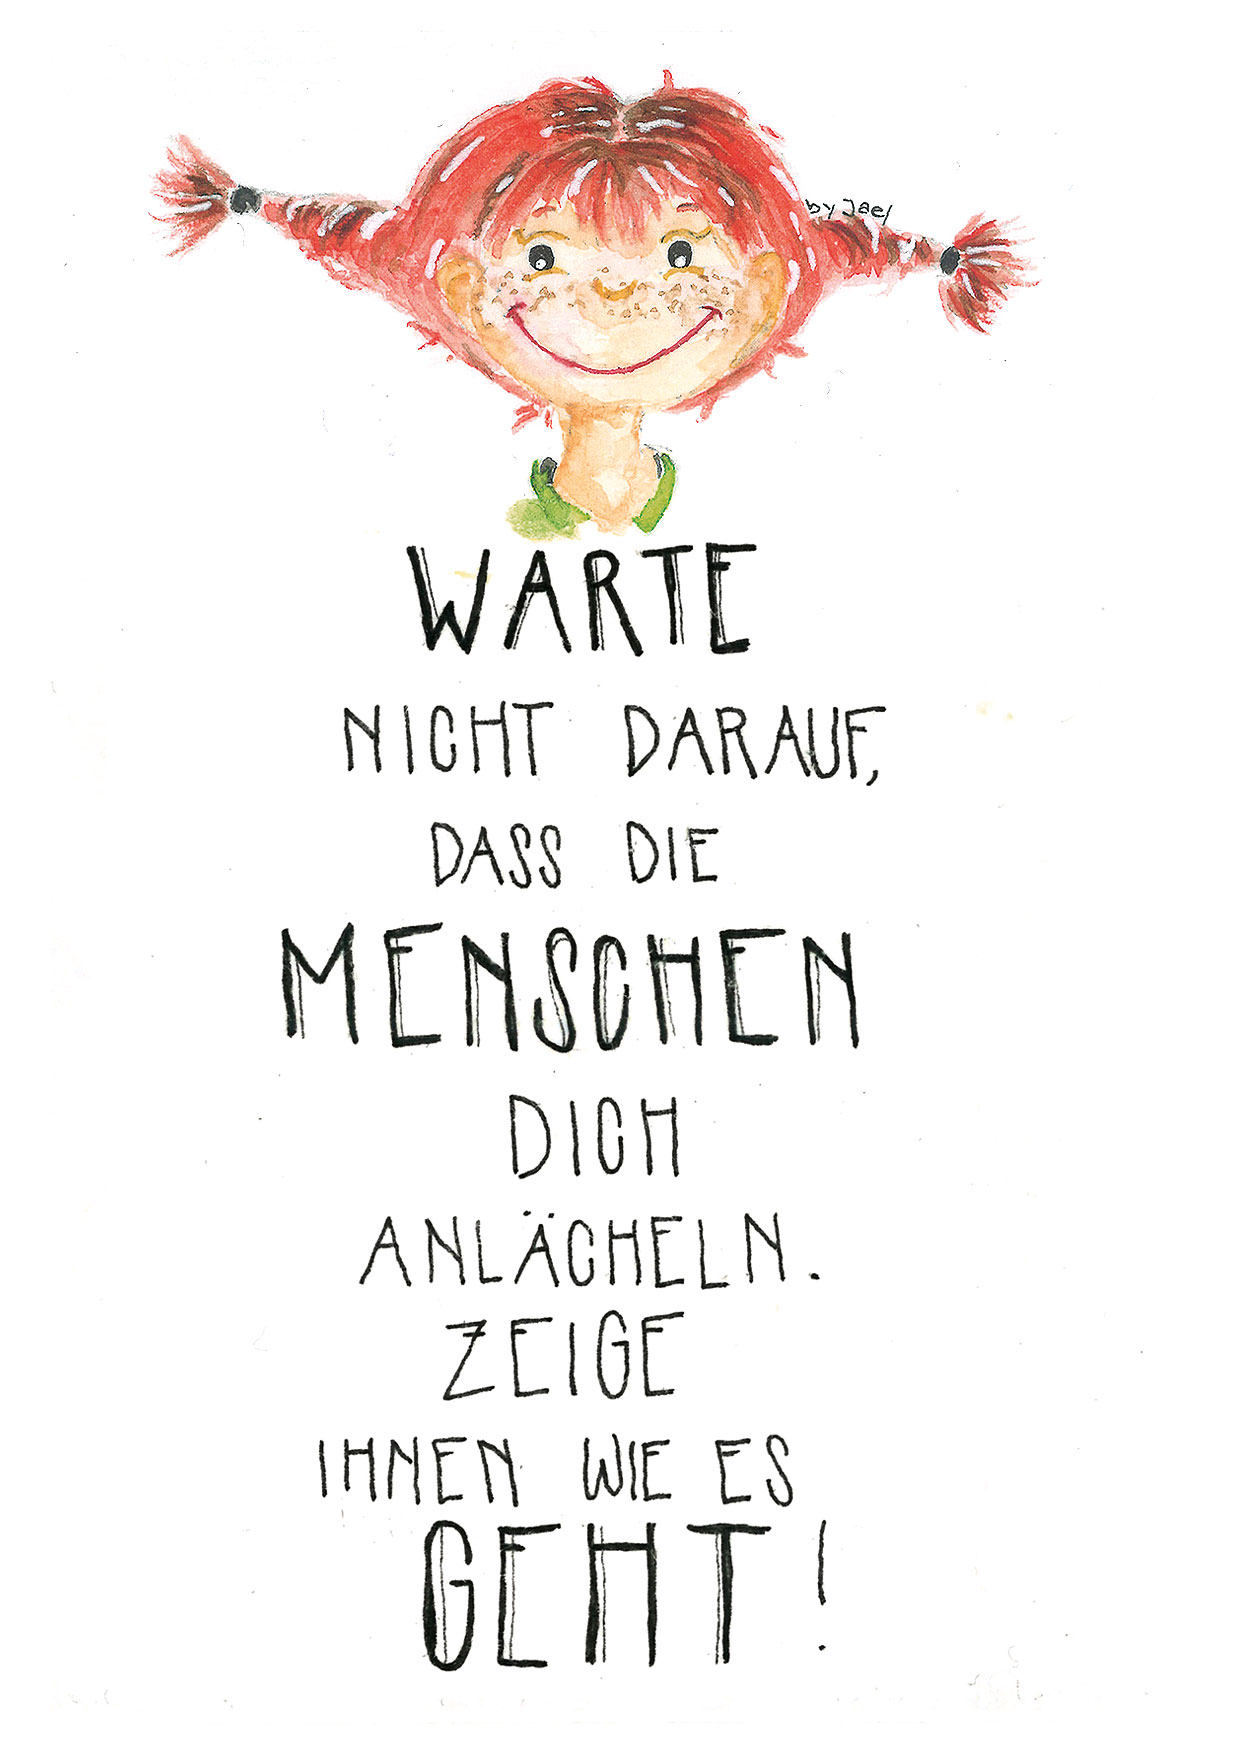 by Jael
WARTE
NICHT DARAUF,
DASS DIE
MENSCHEN
DICH
ANLÄCHELN.
ZEIGE
IHNEN WIE ES
GEHT!